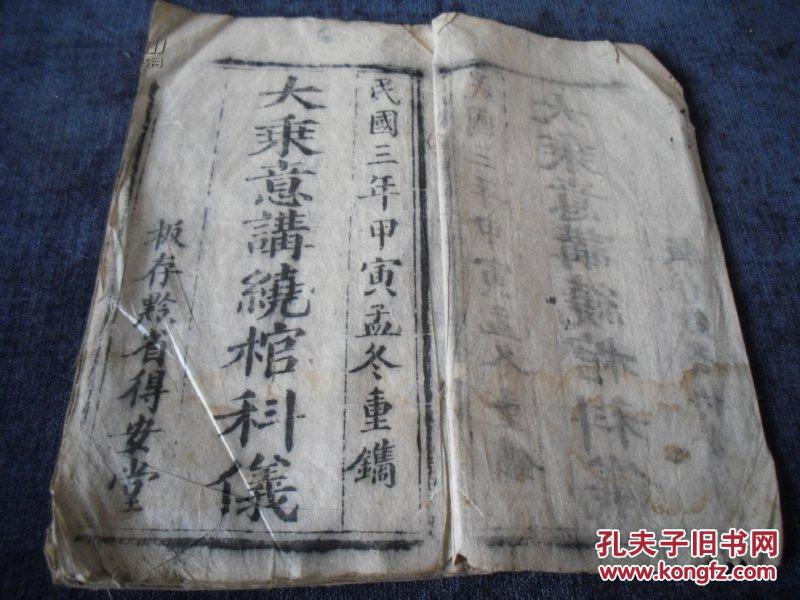 民國三年甲寅孟冬重鐫
大乘意講繞棺科儀
板存黔省得安堂
孔夫子旧书网
www.kongfz.com